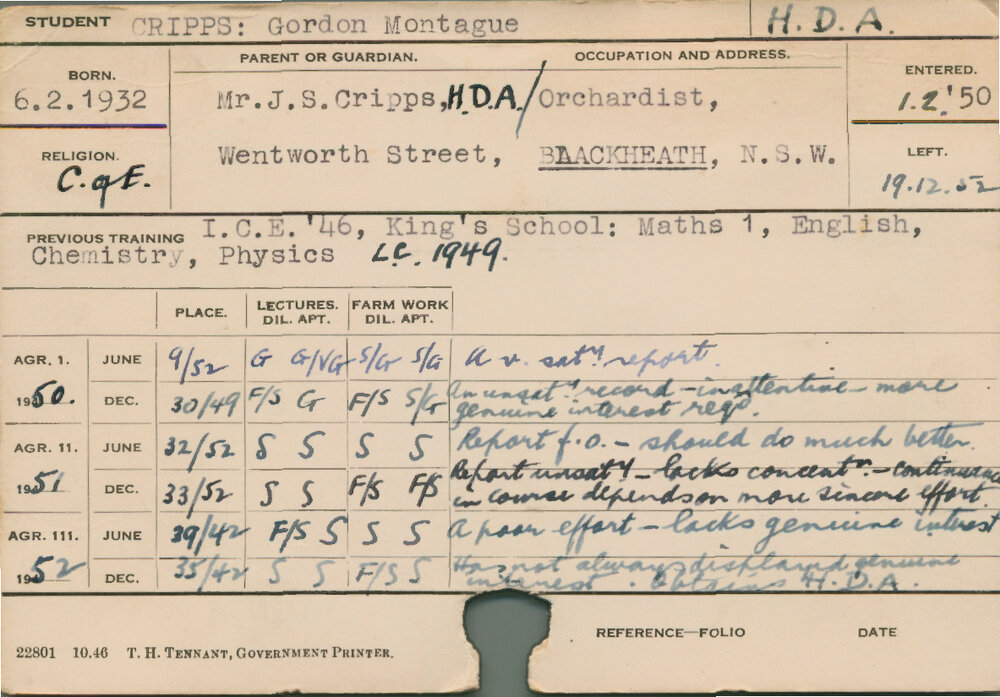 STUDENT CRIPPS: Gordon Montague H.D.A.
BORN. PARENT OR GUARDIAN. OCCUPATION AND ADDRESS. ENTERED.
6.2.1932 Mr.J.S.Cripps, H.D.A./ Orchardist, 1.2.'50
RELIGION. Wentworth Street, BLACKHEATH, N.S.W. LEFT.
C. of E. 19.12.52
PREVIOUS TRAINING I.C.E. '46, King's School: Maths 1, English,
Chemistry, Physics L.C. 1949.
PLACE. LECTURES. FARM WORK
DIL. APT. DIL. APT.
AGR. 1. JUNE 9/52 G G/VG S/G S/G A v. satʸ. report.
1950. DEC. 30/49 F/S G F/S S/G An unsatʸ. record - inattentive - more
genuine interest reqᵈ.
AGR. 11. JUNE 32/52 S S S S Report f.o. - should do much better.
1951 DEC. 33/52 S S F/S F/S Report unsatʸ - lacks concentⁿ. - continuance
in course depends on more sincere effort.
AGR. 111. JUNE 39/42 F/S S S S A poor effort - lacks genuine interest
1952 DEC. 35/42 S S F/S S Has not always displayed genuine
interest. Obtains H.D.A.
REFERENCE—FOLIO DATE
22801 10.46 T. H. TENNANT, GOVERNMENT PRINTER.